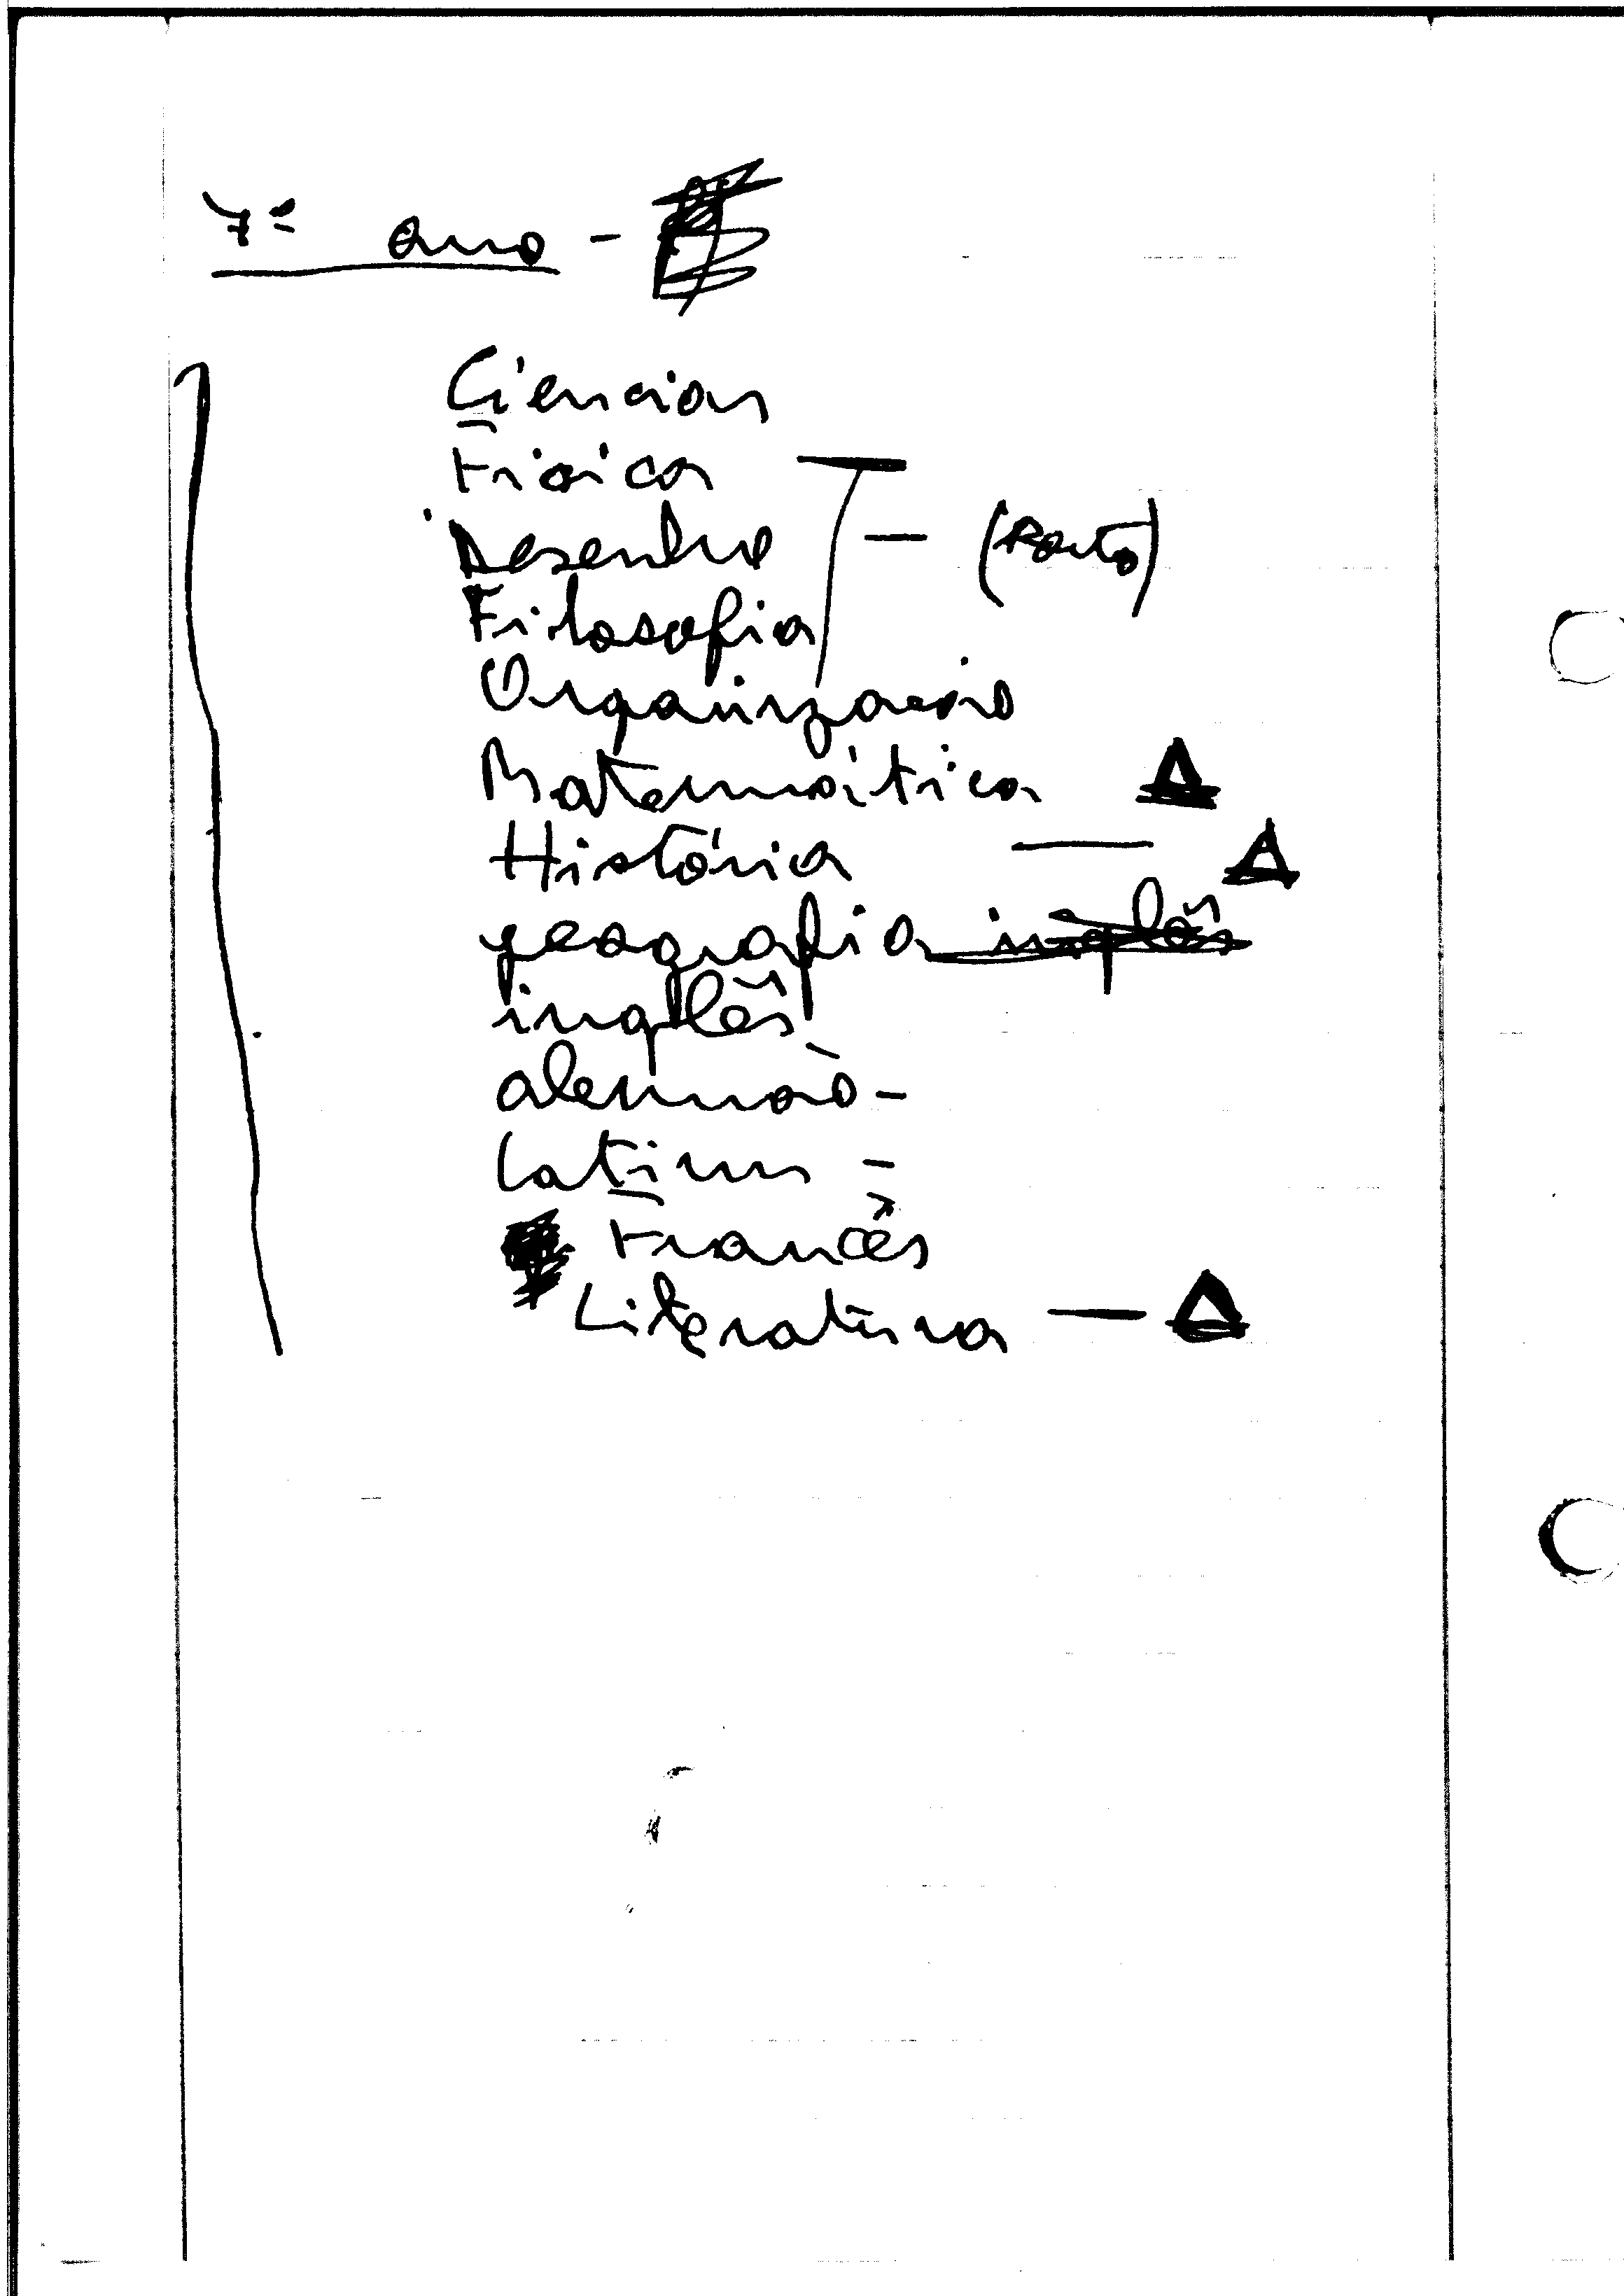 7º ano -
Ciencias
Fisica
Desenho - (Porto)
Filosofia
Organização
Matemática Δ
História — Δ
geografia inglês
inglês
alemão -
Latim -
Francês
Literatura — Δ